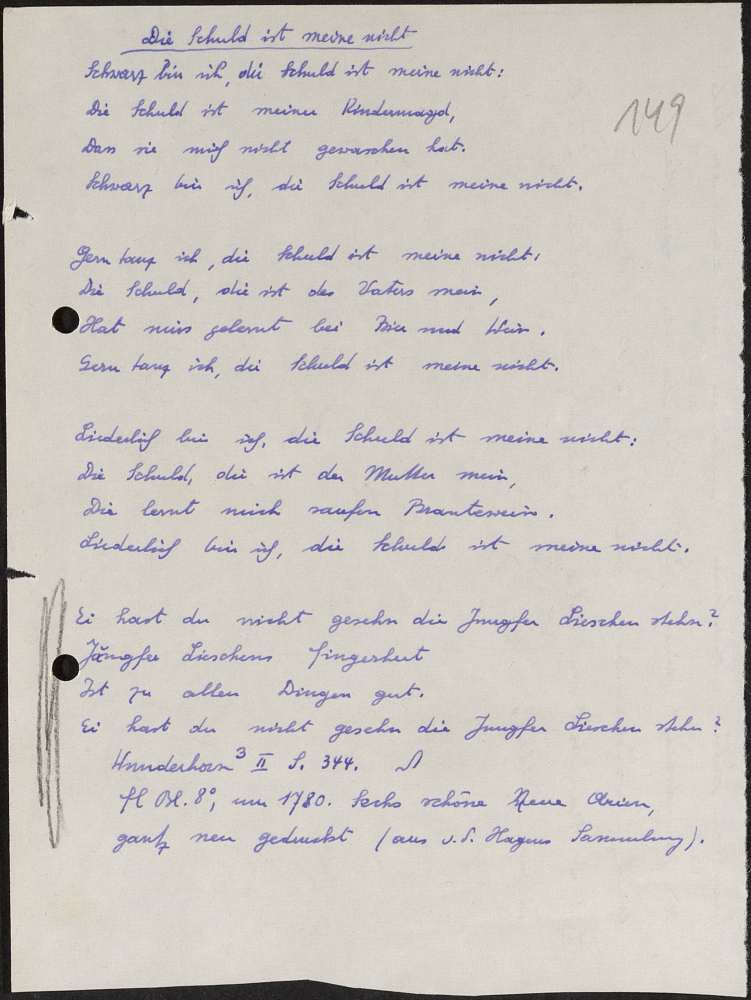 Die Schuld ist meine nicht
Schwarz bin ich, die Schuld ist meine nicht:
149
Die Schuld ist meiner Kindermagd,
Dass sie mich nicht gewaschen hat.
Schwarz bin ich, die Schuld ist meine nicht.
Gern tanz ich, die Schuld ist meine nicht,
Die Schuld, die ist des Vaters mein,
Hat mirs gelernt bei Bier und Wein.
Gern tanz ich, die Schuld ist meine nicht.
Liederlich bin ich, die Schuld ist meine nicht:
Die Schuld, die ist der Mutter mein,
Die lernt mich saufen Brantewein.
Liederlich bin ich, die Schuld ist meine nicht.
Ei hast du nicht gesehn die Jungfer Lieschen stehn?
Jungfer Lieschens Fingerhut
Ist zu allen Dingen gut.
Ei hast du nicht gesehn die Jungfer Lieschen stehn?
Wunderhorn³ II S. 344.
fl Bl. 8°, um 1780. Sechs schöne Neue Arien,
gantz neu gedruckt (aus v. d. Hagens Sammlung).